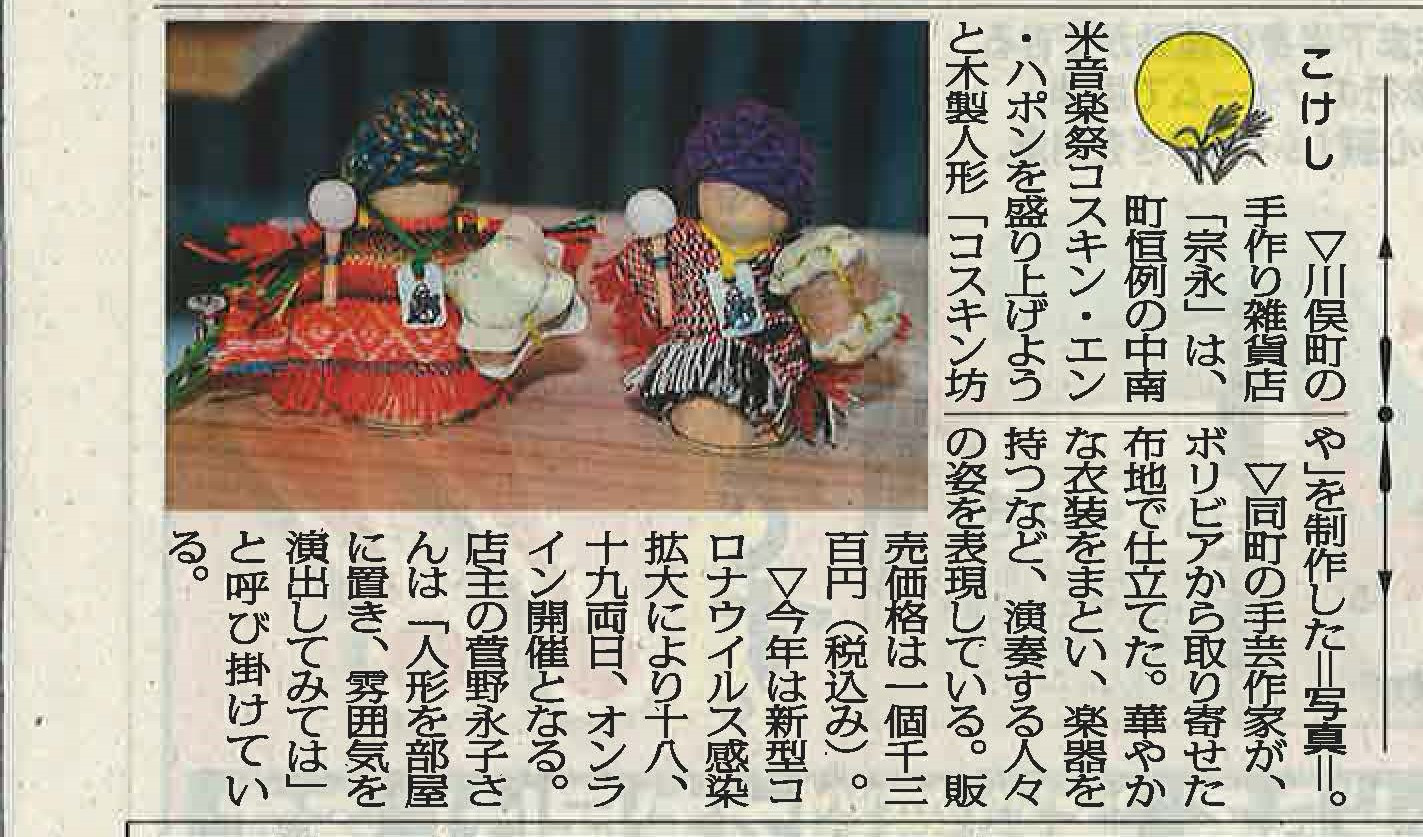 こけし
▽川俣町の
手作り雑貨店
「宗永」は、
町恒例の中南
米音楽祭コスキン・エン
・ハポンを盛り上げよう
と木製人形「コスキン坊
や」を制作した=写真=。
▽同町の手芸作家が、
ボリビアから取り寄せた
布地で仕立てた。華やか
な衣装をまとい、楽器を
持つなど、演奏する人々
の姿を表現している。販
売価格は一個千三
百円（税込み）。
▽今年は新型コ
ロナウイルス感染
拡大により十八、
十九両日、オンラ
イン開催となる。
店主の菅野永子さ
んは「人形を部屋
に置き、雰囲気を
演出してみては」
と呼び掛けてい
る。